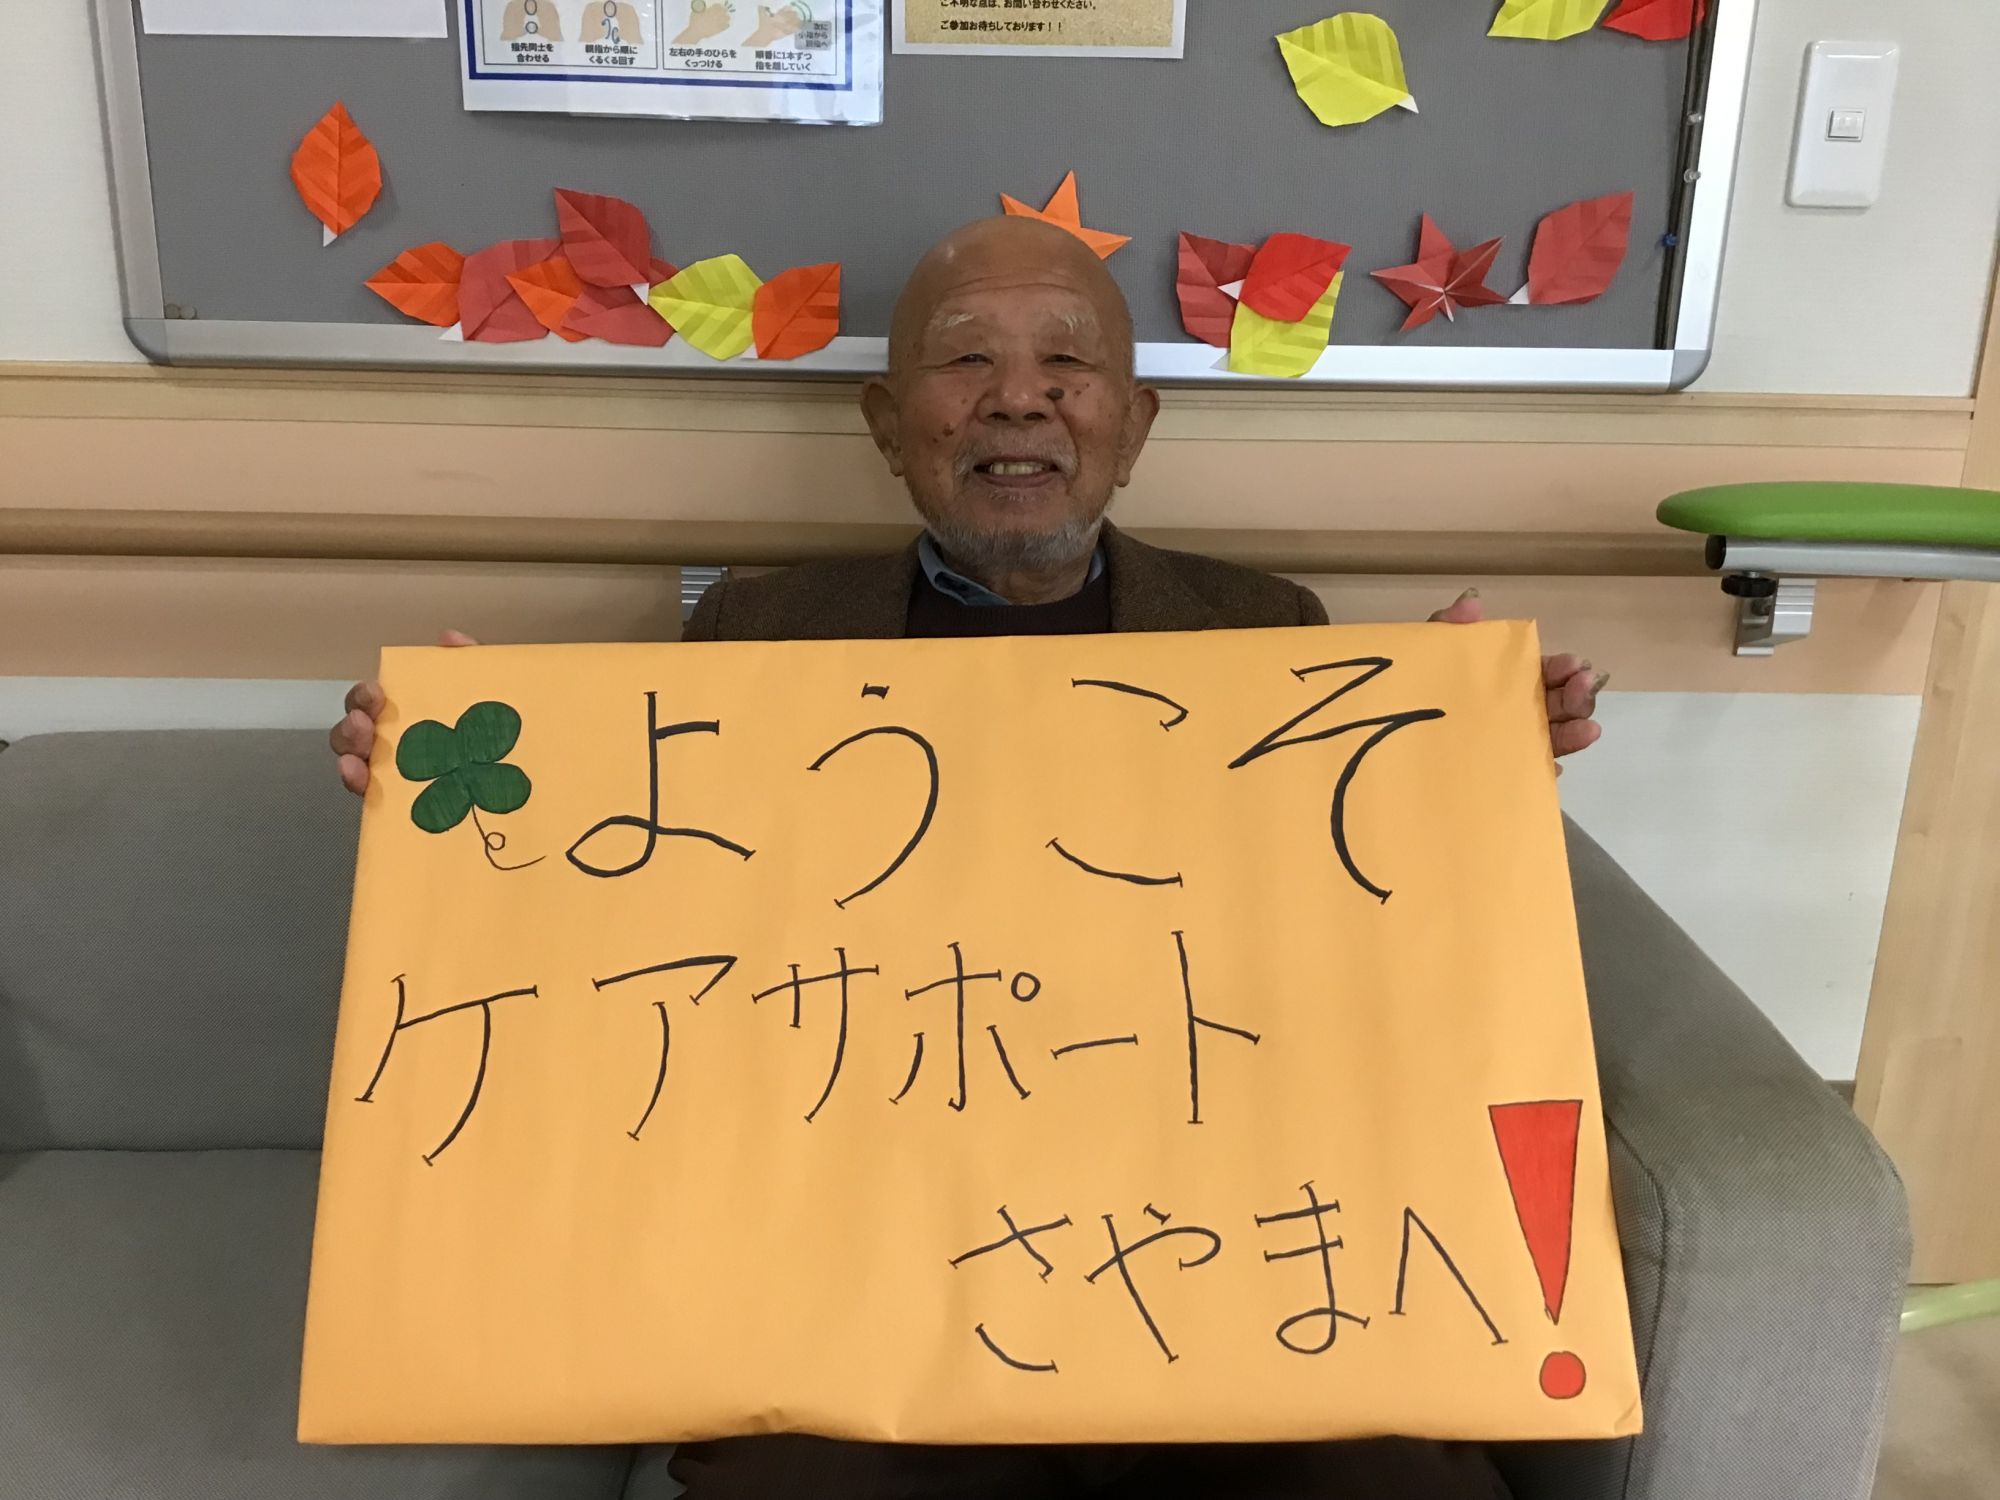 指先同士を
合わせる
親指から順に
くるくる回す
左右の手のひらを
くっつける
順番に1本ずつ
指を離していく
次に
小指から
親指へ
ご不明な点は、お問い合わせください。
ご参加お待ちしております!!
ようこそ
ケアサポート
さやまへ!